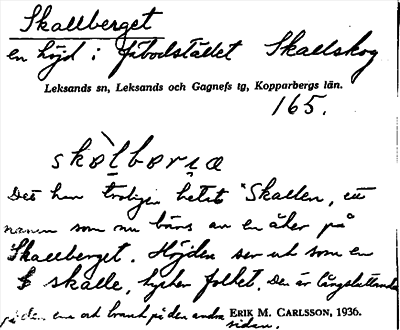 Skallberget
en höjd i fäbodstället Skallskog
Leksands sn, Leksands och Gagnefs tg, Kopparbergs län.
165.
skὰlbærıa
Det har troligen hetat *Skallen, ett
namn som nu bärs av en åker på
Skallberget. Höjden ser ut som en
skalle, tycker folket. Den är långsluttande
på den ena och brant på den andra
sidan.
ERIK M. CARLSSON, 1936.